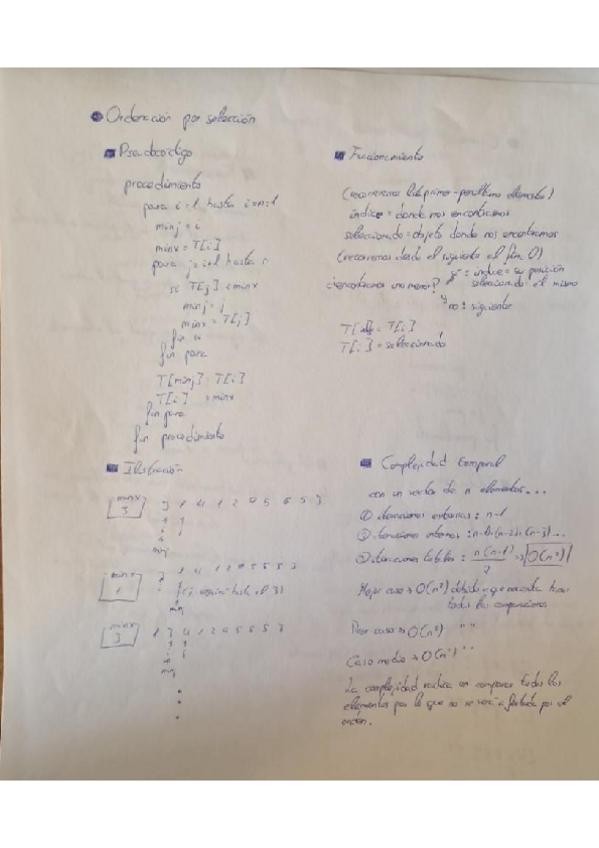 Ordenación por selección
Pseudocódigo
procedimiento
para i=1 hasta i=n-1
minj = i
minx = T[i]
para j=i+1 hasta n
si T[j] < minx
minj = j
minx = T[j]
fin si
fin para
T[minj] = T[i]
T[i] = minx
fin para
fin procedimiento
Funcionamiento
(recorremos primer-penúltimo elemento)
índice = donde nos encontramos
seleccionado = objeto donde nos encontramos
(recorremos desde el siguiente al fin)
¿encontramos uno menor?
sí: índice = su posición
seleccionado = el mismo
no: siguiente
T[i]
T[i] = seleccionado
Ilustración
minx
3
3 1 4 1 2 9 5 6 5 3
i j
minj
minx
1
(j seguirá hasta el 3)
minj
minx
3
1 3 4 1 2 9 5 6 5 3
minj
Complejidad temporal
con un vector de n elementos...
① iteraciones externas: n-1
② iteraciones internas: (n-1)+(n-2)+(n-3)...
③ iteraciones totales: n(n-1)/2 => O(n²)
Mejor caso → O(n²) debido a que necesita hacer
todas las comparaciones
Peor caso → O(n²) " "
Caso medio → O(n²) " "
La complejidad radica en comparar todos los
elementos por lo que no se verá afectada por el
orden.